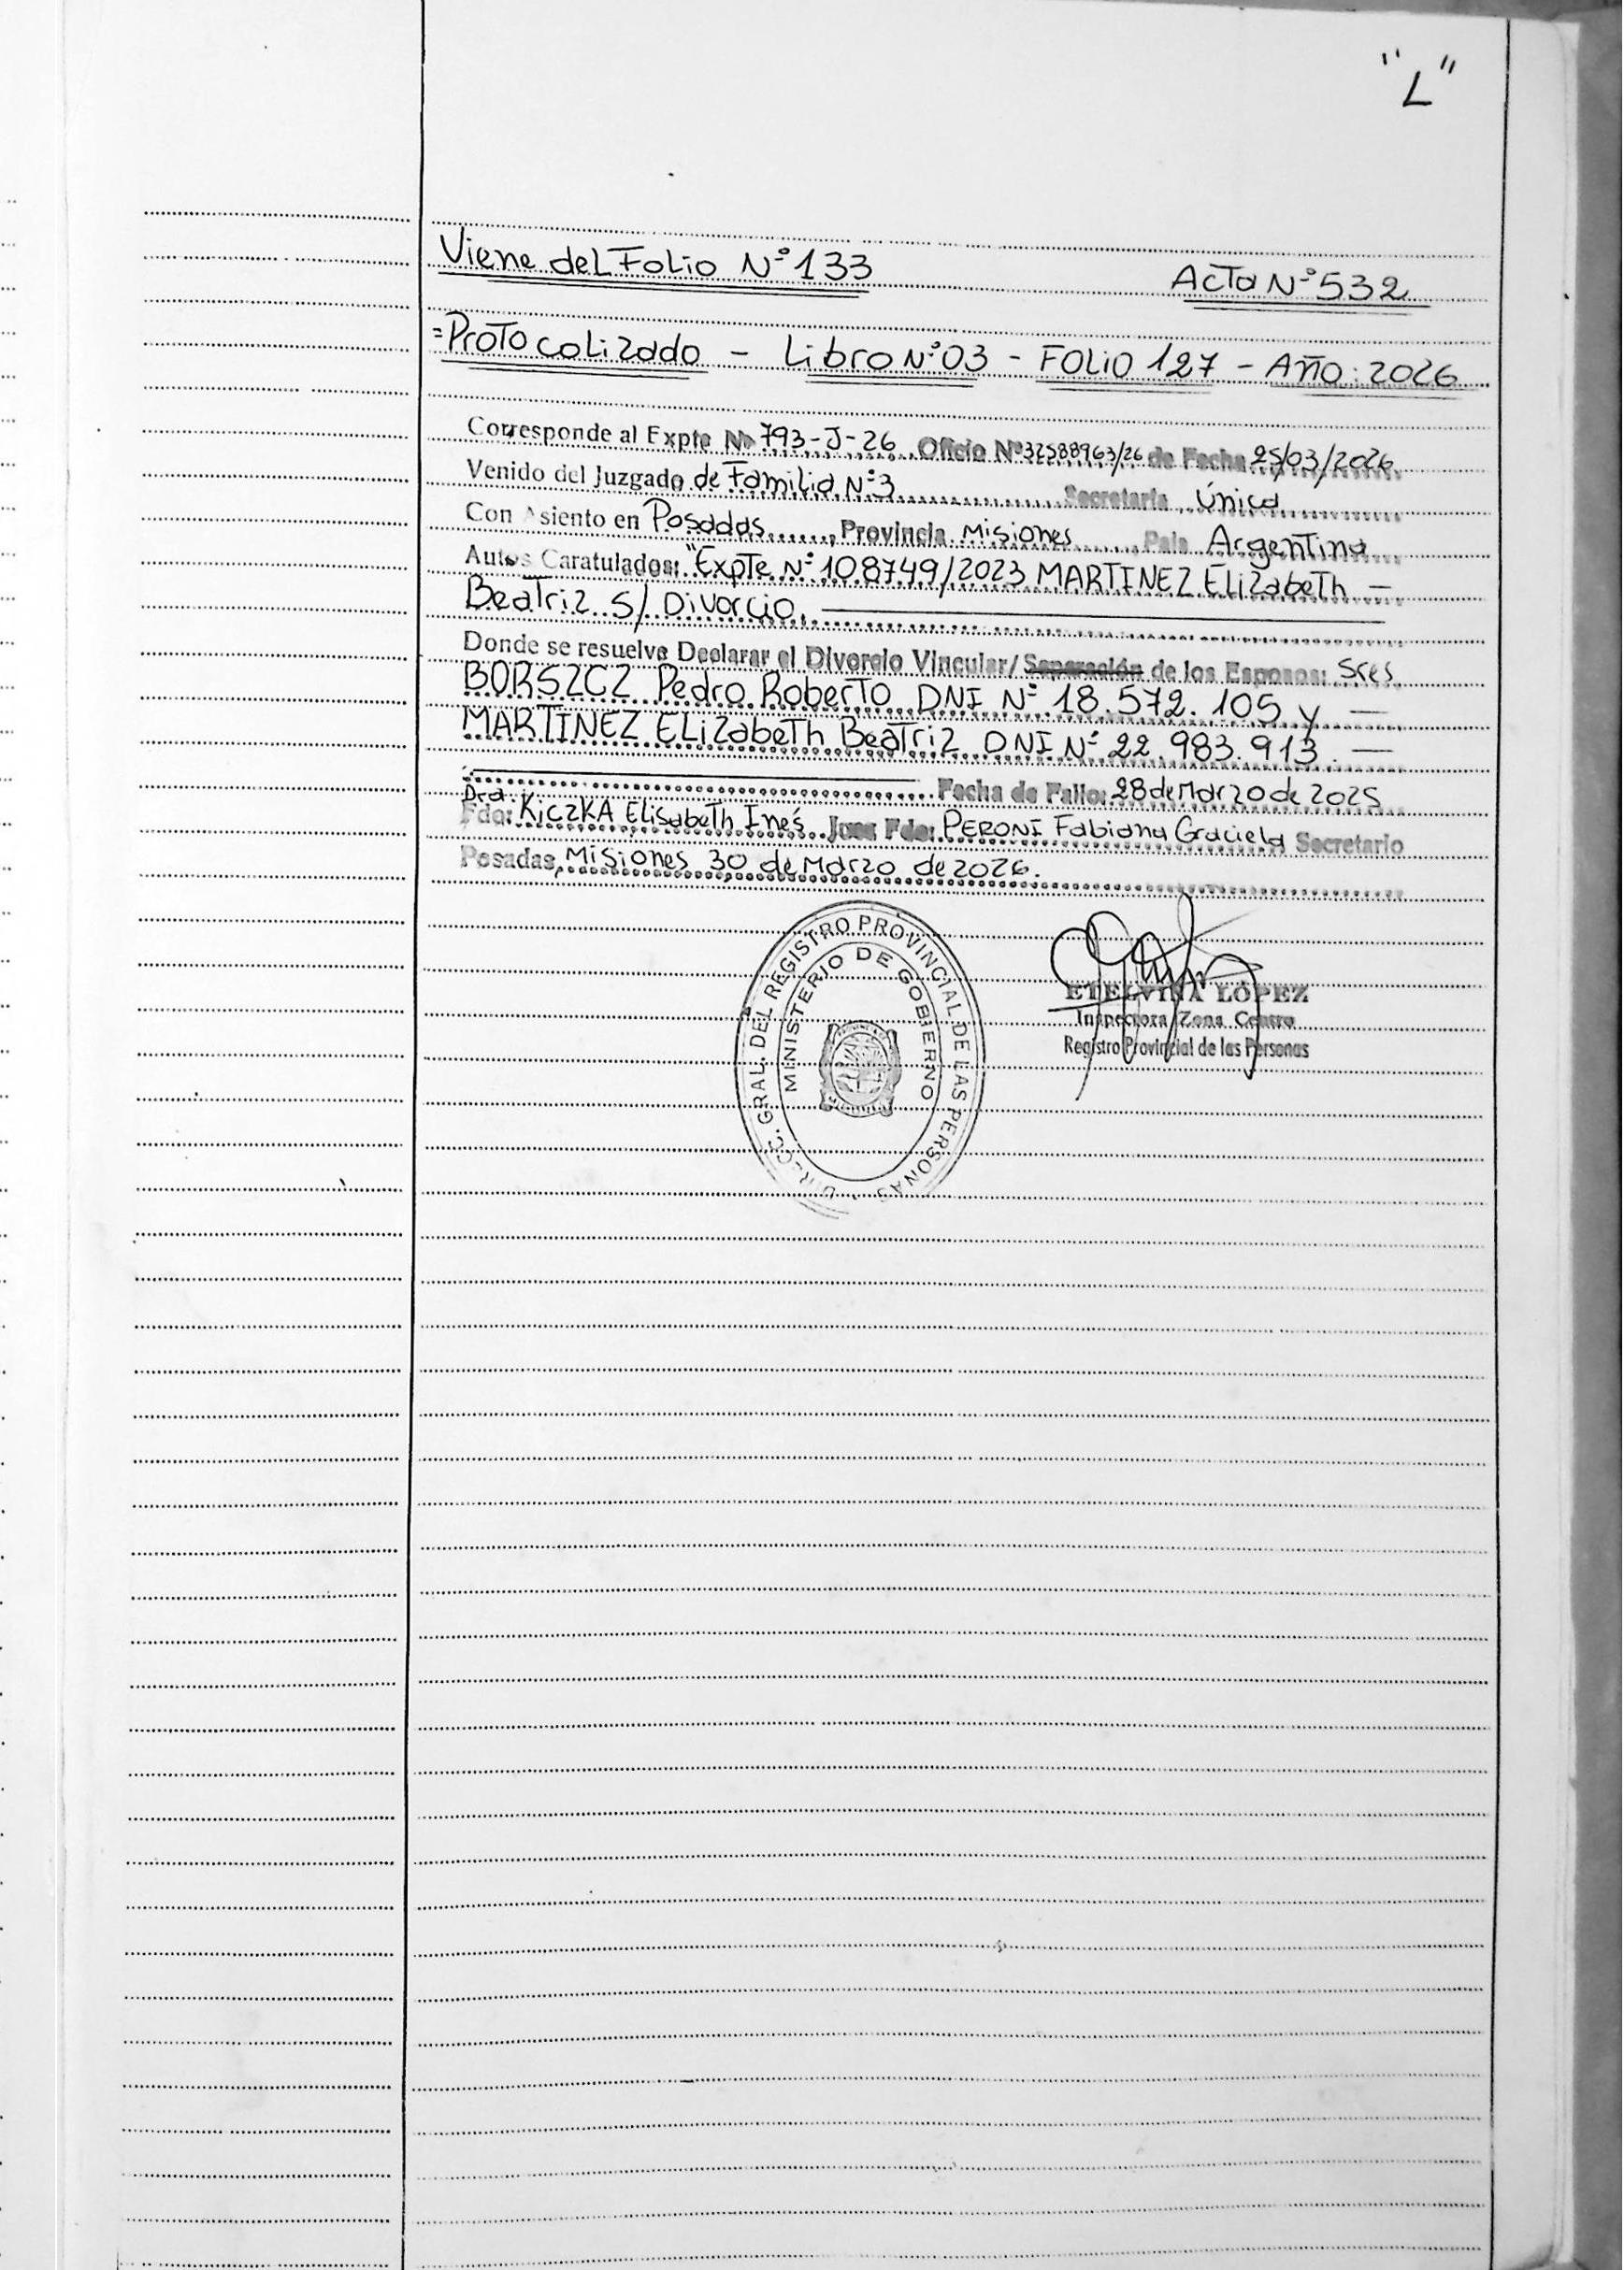 "L"
Viene del Folio N° 133 Acta N° 532
=Protocolizado - Libro N° 03 - Folio 127 - Año: 2026
Corresponde al Expte Nº 793-J-26 Oficio Nº 32588963/26 de Fecha 25/03/2026
Venido del Juzgado de Familia N° 3 Secretaria Única
Con Asiento en Posadas, Provincia Misiones País Argentina
Autos Caratulados: "Expte N° 108749/2023 MARTINEZ Elizabeth -
Beatriz s/ Divorcio.
Donde se resuelve Declarar el Divorcio Vincular/Separación de los Esposos: Sres
BORSZCZ Pedro Roberto DNI N° 18.572.105 y -
MARTINEZ Elizabeth Beatriz DNI N° 22.983.913. -
Fecha de Fallo: 28 de Marzo de 2025
Dra.
Fdo: KICZKA Elisabeth Inés Juez Fdo: PERONI Fabiana Graciela Secretario
Posadas, Misiones 30 de Marzo de 2026.
DIRECC. GRAL. DEL REGISTRO PROVINCIAL DE LAS PERSONAS
MINISTERIO DE GOBIERNO
ETELVINA LÓPEZ
Inspectora Zona Centro
Registro Provincial de las Personas